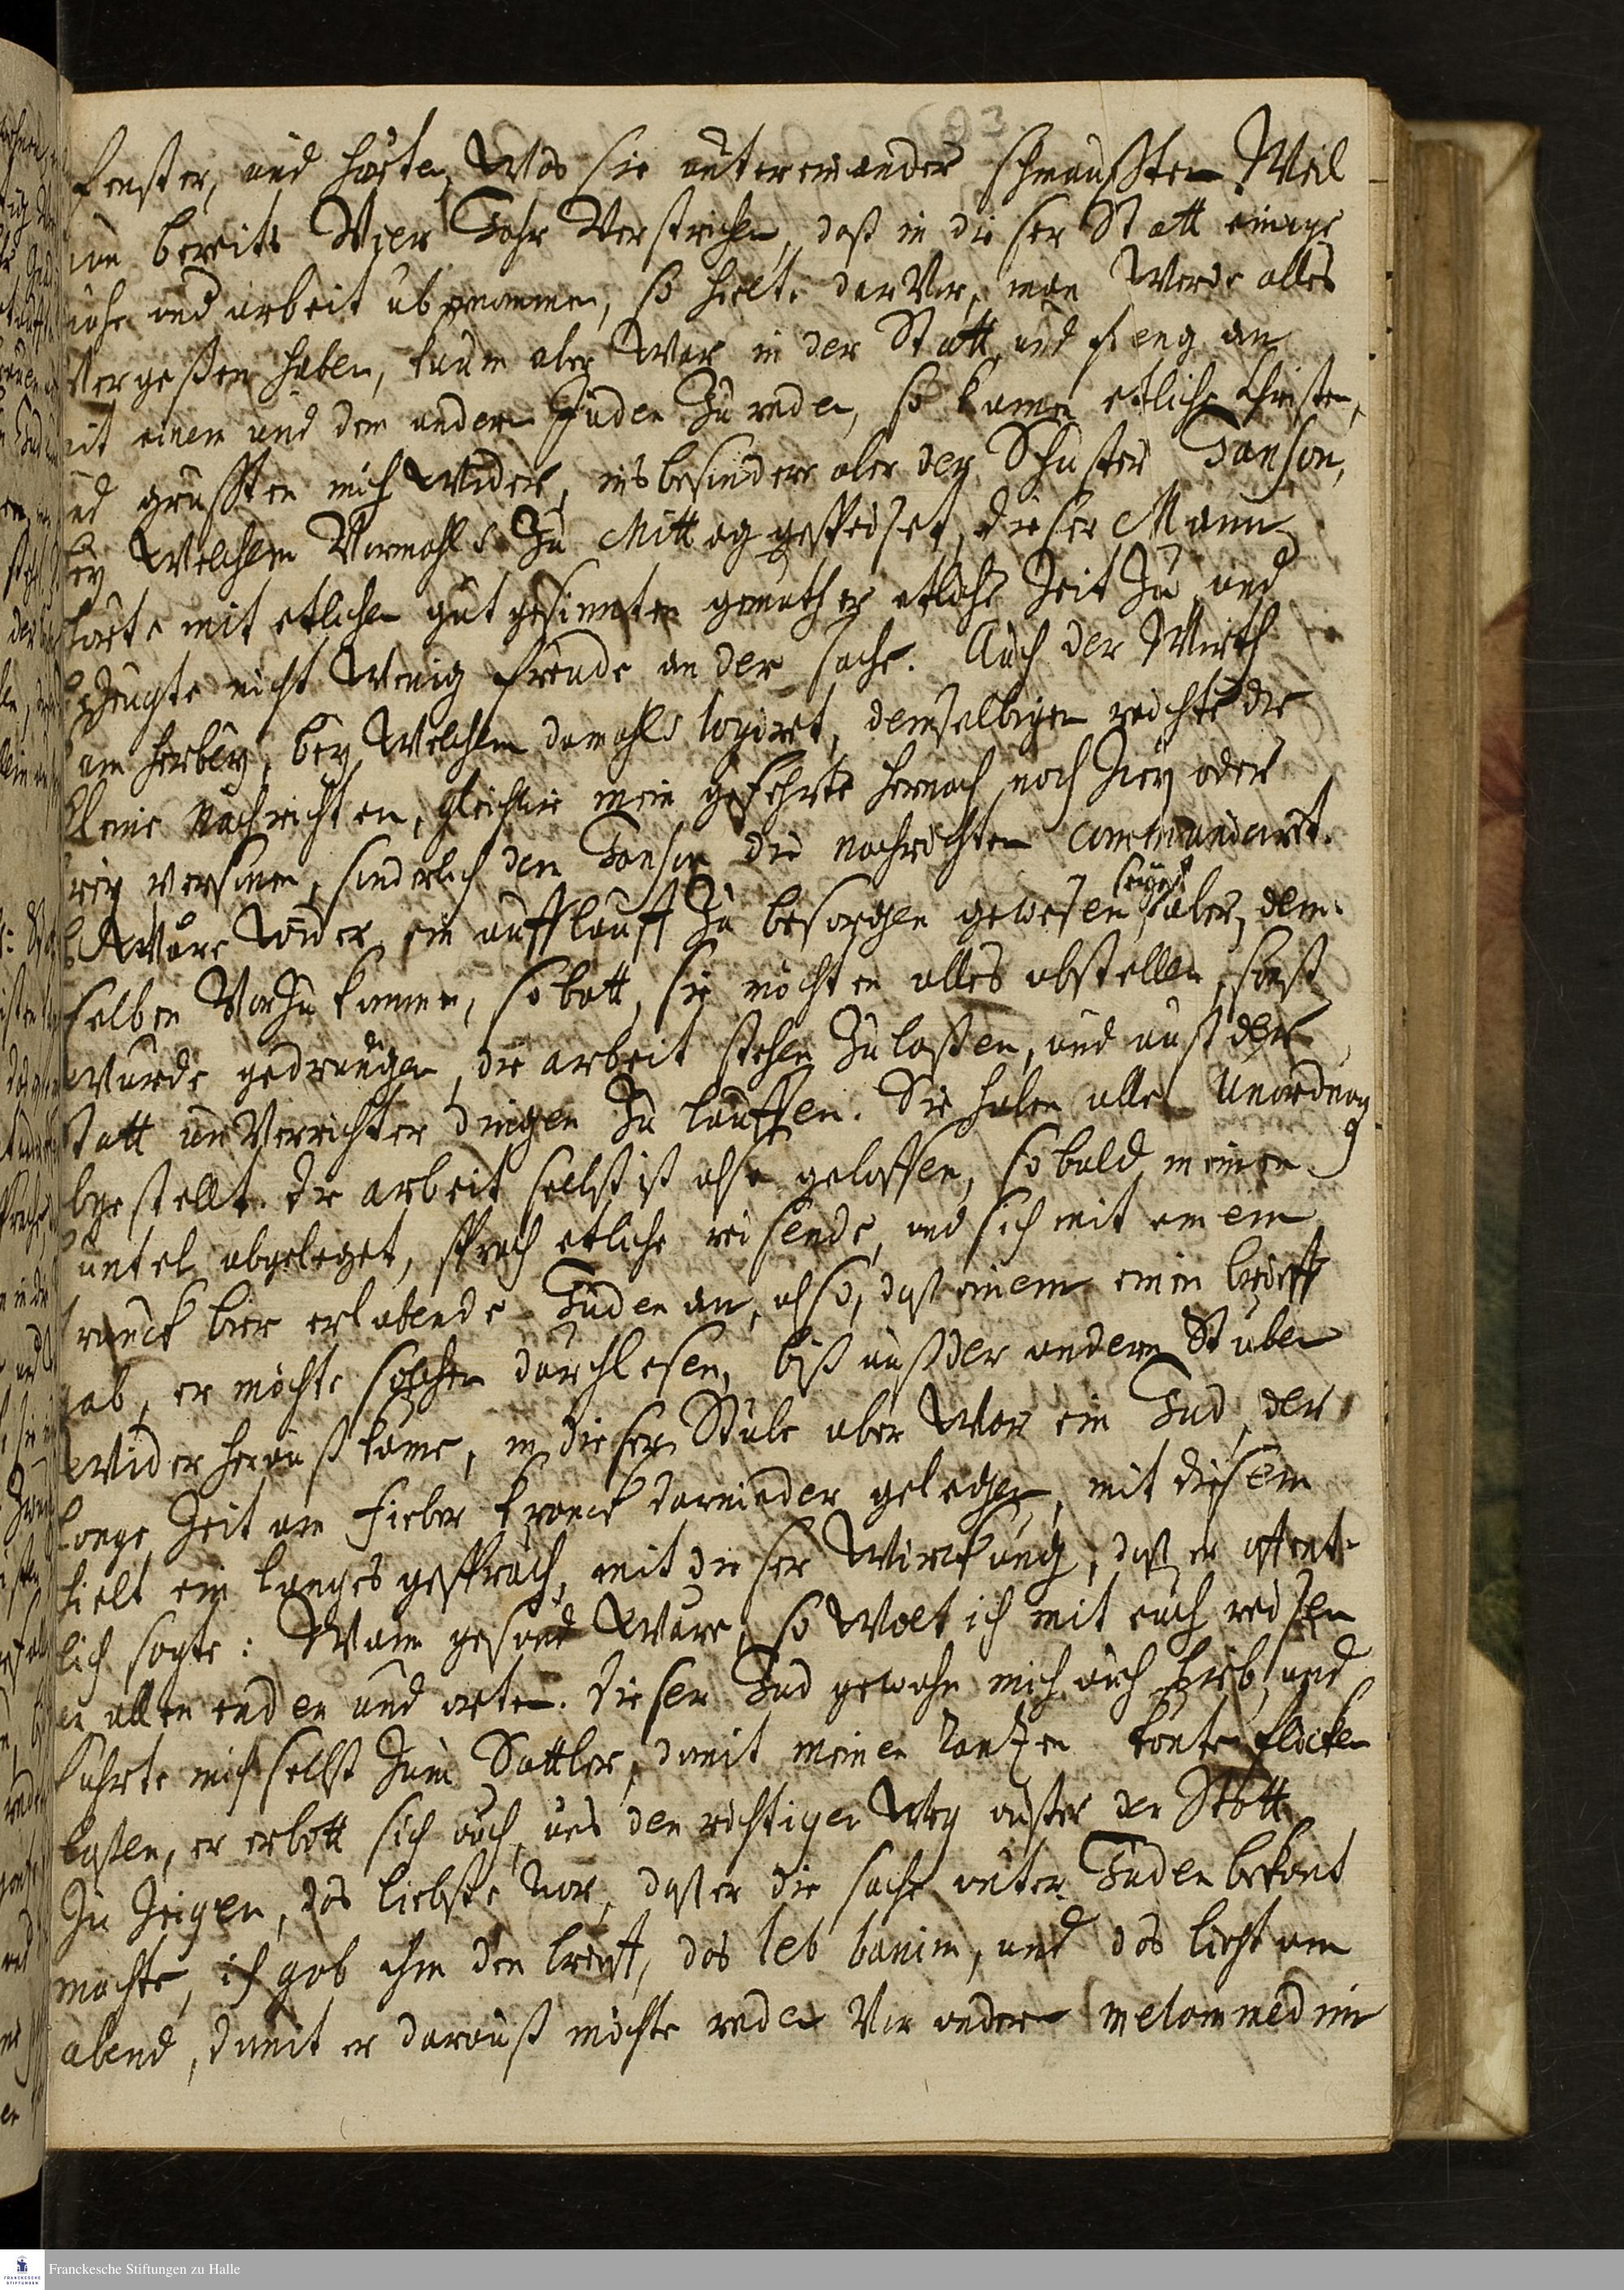 fenster, und hörte, Was sie untereinander schmaußten. Weil
nun bereits Vier Jahr Verstrichen, daß in dieser Statt einige
mühe und arbeit übernommen, so hielte darVor, man Werde alles
Vergeßen haben, kaum aber War in der Statt, und fieng an
mit einem und dem andern Juden Zu reden, so kamen etliche Christen,
und grüßten mich Wider, insbesondere aber der Schuster Janson,
bey Welchem Vormahls Zu Mittag gespeiset, dieser Mann
hörte mit etlichen gut gesinnten gemüther etliche Zeit Zu und
bezeugte nicht Wenig freude an der sache. Auch der Wirth
kam herbey, bey Welchem damahls logiret, demselbigen reichte die
kleine Nachrichten, gleichwie mein gefehrte hernach noch Zwey oder
drey personen, sonderlich dem Janson die nachrichten communicirt.
Es Wäre Wider ein aufflauff Zu besorgen gewesen, aber dem-
selben VorZukommen, so batt, sie möchten alles abstellen, sonst
Wurde gedrungen, die arbeit stehen Zulaßen, und auß der
Statt unVerrichter dingen Zu lauffen. Sie haben alle Unordnung
abgestellt. Die arbeit selbst ist also geloffen, sobald meinen
Mantel abgeleget, sprach etliche reisende, und sich mit einem
trunck bier erlabende Juden an, also, daß einem einen brieff
gab, er möchte solchen durchlesen, biß auß der andern Stuben
Wider herauß käme, in dieser Stube aber War ein Jud, der
lange Zeit am fieber kranck darnieder gelegen, mit diesem
hielt ein langes gespräch, mit dieser Wirckung, daß er offent-
lich sagte: Wann gesund Wäre, so Wolt ich mit euch reisen
an allen enden und orten. Dieser Jud gewahn mich auch lieb, und
führte mich selbst Zum Sattler, damit meinen Rantzen konte flicken
laßen, er erbott sich auch, uns den richtigen Weg außer der Statt
Zu Zeigen, das liebste War, daß er die sache unter Juden bekant
machte, ich gab ihm den brieff, das leb banim, und das licht am
abend, damit er darauß möchte reden Vor andern melammedim
Franckesche Stiftungen zu Halle